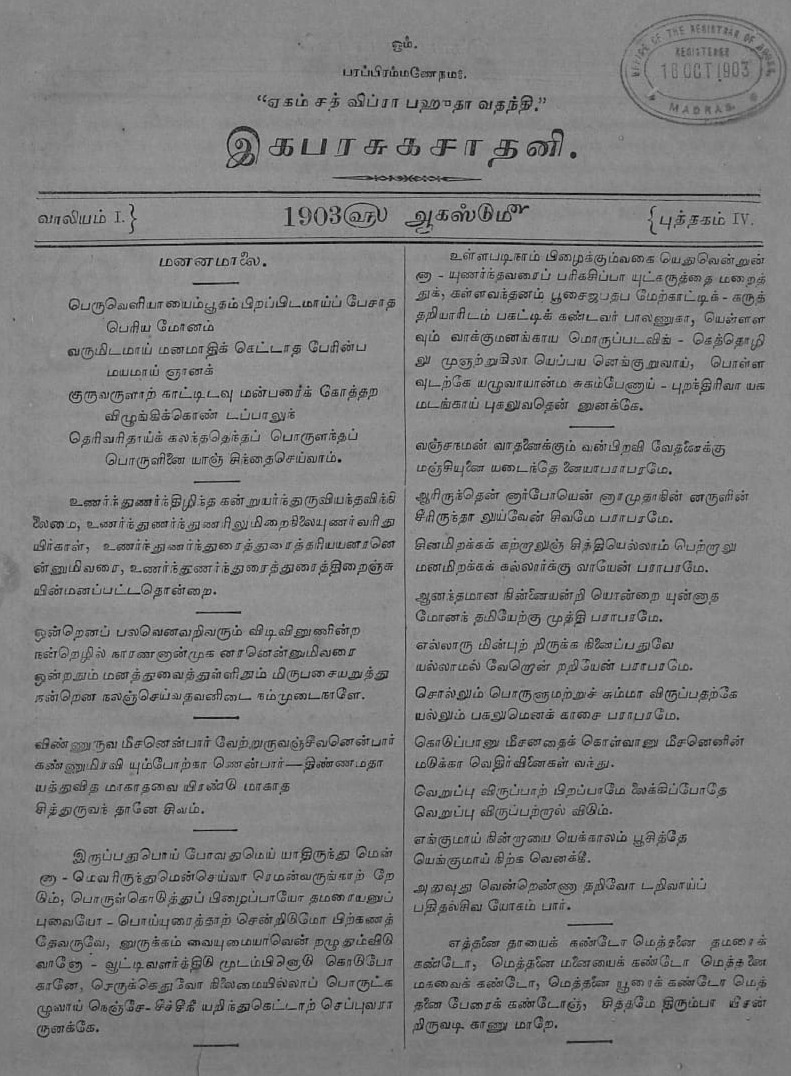 ஓம்.
பரப்பிரம்மணேநமஃ.
“ஏகம் சத் விப்ரா பஹுதா வதந்தி.”
இகபரசுகசாதனி.
OFFICE OF THE REGISTRAR OF BOOKS
REGISTERED
16 OCT 1903
MADRAS
வாலியம் I.}
1903௵ ஆகஸ்டு௴
{புத்தகம் IV.
மனனமாலை.
பெருவெளியாயைம்பூதம் பிறப்பிடமாய்ப் பேசாத
பெரிய மோனம்
வருமிடமாய் மனமாதிக் கெட்டாத பேரின்ப
மயமாய் ஞானக்
குருவருளாற் காட்டிடவு மன்பரைக் கோத்தற
விழுங்கிக்கொண் டப்பாலுந்
தெரிவரிதாய்க் கலந்ததெந்தப் பொருளந்தப்
பொருளினை யாஞ் சிந்தைசெய்வாம்.
உணர்ந்துணர்ந்திழிந்த கன்றுயர்ந்துருவியந்தவிந்நி
லைமை, உணர்ந்துணர்ந்துணரிலுமிறைநிலையுணர்வரிது
யிர்காள், உணர்ந்துணர்ந்துரைத்துரைத்தரியயனரனெ
ன்னுமிவரை, உணர்ந்துணர்ந்துரைத்துரைத்திறைஞ்சு
மின்மனப்பட்டதொன்றை.
ஒன்றெனப் பலவெனவறிவரும் விடிவினுணின்ற
நன்றெழில் நாரணனான்முக னரனென்னுமிவரை
ஒன்றநும் மனத்துவைத்துள்ளிநும் மிருபசையறுத்து
நன்றென நலஞ்செய்வதவனிடை நம்முடைநாளே.
விண்ணுருவ மீசனென்பார் வேற்றுருவஞ்சிவனென்பார்
கண்ணுமிரவி யும்போற்கா ணென்பார்—திண்ணமதா
யத்துவித மாகாதவை யிரண்டு மாகாத
சித்துருவந் தானே சிவம்.
இருப்பதுபொய் போவதுமெய் யாதிருந்து மென்
னா - மெவரிருந்துமென்செய்வா ரெமன்வருங்காற் றே
டும், பொருள்கொடுத்துப் பிழைப்பாயோ தமரையனுப்
புவையோ - பொய்யுரைத்தாற் சென்றிடுமோ பிற்கணத்
தேவருவே, னுருக்கம் வையுமையாவென் றழுதும்விடு
வானோ - வூட்டிவளர்த்திடு முடம்பினொடு கொடுபோ
கானே, செருக்கெதுவோ நிலைமையில்லாப் பொருட்க
ழுவாய் நெஞ்சே- சீச்சிநீ யறிந்துகெட்டாற் செப்புவரா
ருனக்கே.
உள்ளபடிநாம் பிழைக்கும்வகை யெதுவென்றுன்
னா - யுணர்ந்தவரைப் பரிகசிப்பா யுட்கருத்தை மறைத்
துக், கள்ளவந்தனம் பூசைஜபதப மேற்காட்டிக் - கருத்
தறியாரிடம் பகட்டிக் கண்டவர் பாலணுகா, யெள்ளள
வும் வாக்குமனங்காய மொருப்படவிங் - கெத்தொழி
லு முஞற்றுகிலா யெப்பய னெங்குறுவாய், பொள்ள
வுடற்கே யழுவாயான்ம சுகம்பேணாய் - புறந்திரிவா யக
மடங்காய் புகலுவதென் னுனக்கே.
வஞ்சநமன் வாதனைக்கும் வன்பிறவி வேதனைக்கு
மஞ்சியுனை யடைந்தே னையாபராபரமே.
ஆரிருந்தென் னார்போயென் னாரமுதாநின் னருளின்
சீரிருந்தா லுய்வேன் சிவமே பராபரமே.
சினமிறக்கக் கற்றாலுஞ் சித்தியெல்லாம் பெற்றாலு
மனமிறக்கக் கல்லார்க்கு வாயேன் பராபரமே.
ஆனந்தமான நின்னையன்றி யொன்றை யுன்னாத
மோனந் தமியேற்கு முத்தி பராபரமே.
எல்லாரு மின்புற் றிருக்க நினைப்பதுவே
யல்லாமல் வேறொன் றறியேன் பராபரமே.
சொல்லும் பொருளுமற்றுச் சும்மா விருப்பதற்கே
யல்லும் பகலுமெனக் காசை பராபரமே.
கொடுப்பானு மீசனதைக் கொள்வானு மீசனெனின்
மடுக்கா வெதிர்வினைகள் வந்து.
வெறுப்பு விருப்பாற் பிறப்பாமே லைக்கிப்போதே
வெறுப்பு விருப்பற்றால் விடும்.
எங்குமாய் நின்றாயை யெக்காலம் பூசித்தே
யெங்குமாய் நிற்க வெனக்கீ.
அதுவுது வென்றெண்ணா தறிவோ டறிவாய்ப்
பதிதல்சிவ யோகம் பார்.
எத்தனை தாயைக் கண்டோ மெத்தனை தமரைக்
கண்டோ, மெத்தனை மனையைக் கண்டோ மெத்தனை
மகவைக் கண்டோ, மெத்தனை யூரைக் கண்டோ மெத்
தனை பேரைக் கண்டோஞ், சித்தமே திரும்பா யீசன்
றிருவடி காணு மாறே.